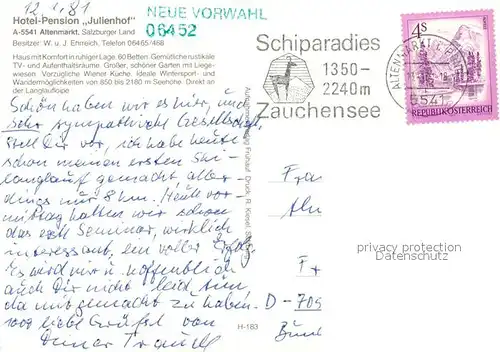 12.1.81
Hotel-Pension „Julienhof"
A-5541 Altenmarkt, Salzburger Land
Besitzer: W. u. J. Ehrreich, Telefon 06465/468
Haus mit Komfort in ruhiger Lage. 60 Betten. Gemütliche rustikale
TV- und Aufenthaltsräume. Großer, schöner Garten mit Liege-
wiesen. Vorzügliche Wiener Küche. Ideale Wintersport- und
Wandermöglichkeiten von 850 bis 2180 m Seehöhe. Direkt an
der Langlaufloipe
NEUE VORWAHL
06452
Schiparadies
1350–
2240m
Zauchensee
4S
REPUBLIK ÖSTERREICH
5541
Schön haben wir es hier, und
sehr sympathische Gesellschaft,
stell Dir vor, ich habe heute
schon meinen ersten Ski-
langlauf gemacht aller-
dings nur 8 km. Heute vor-
mittag hatten wir schon
das erste Seminar, wirklich
interessant, ein voller Erfolg.
Es wird mir u. hoffentlich
auch Dir nicht leid tun,
da mitgemacht zu haben.
1000 liebe Grüße von
Deiner Traudl
Druck: R. Kiesel
H-183
Fra
D-709
privacy protection
Datenschutz